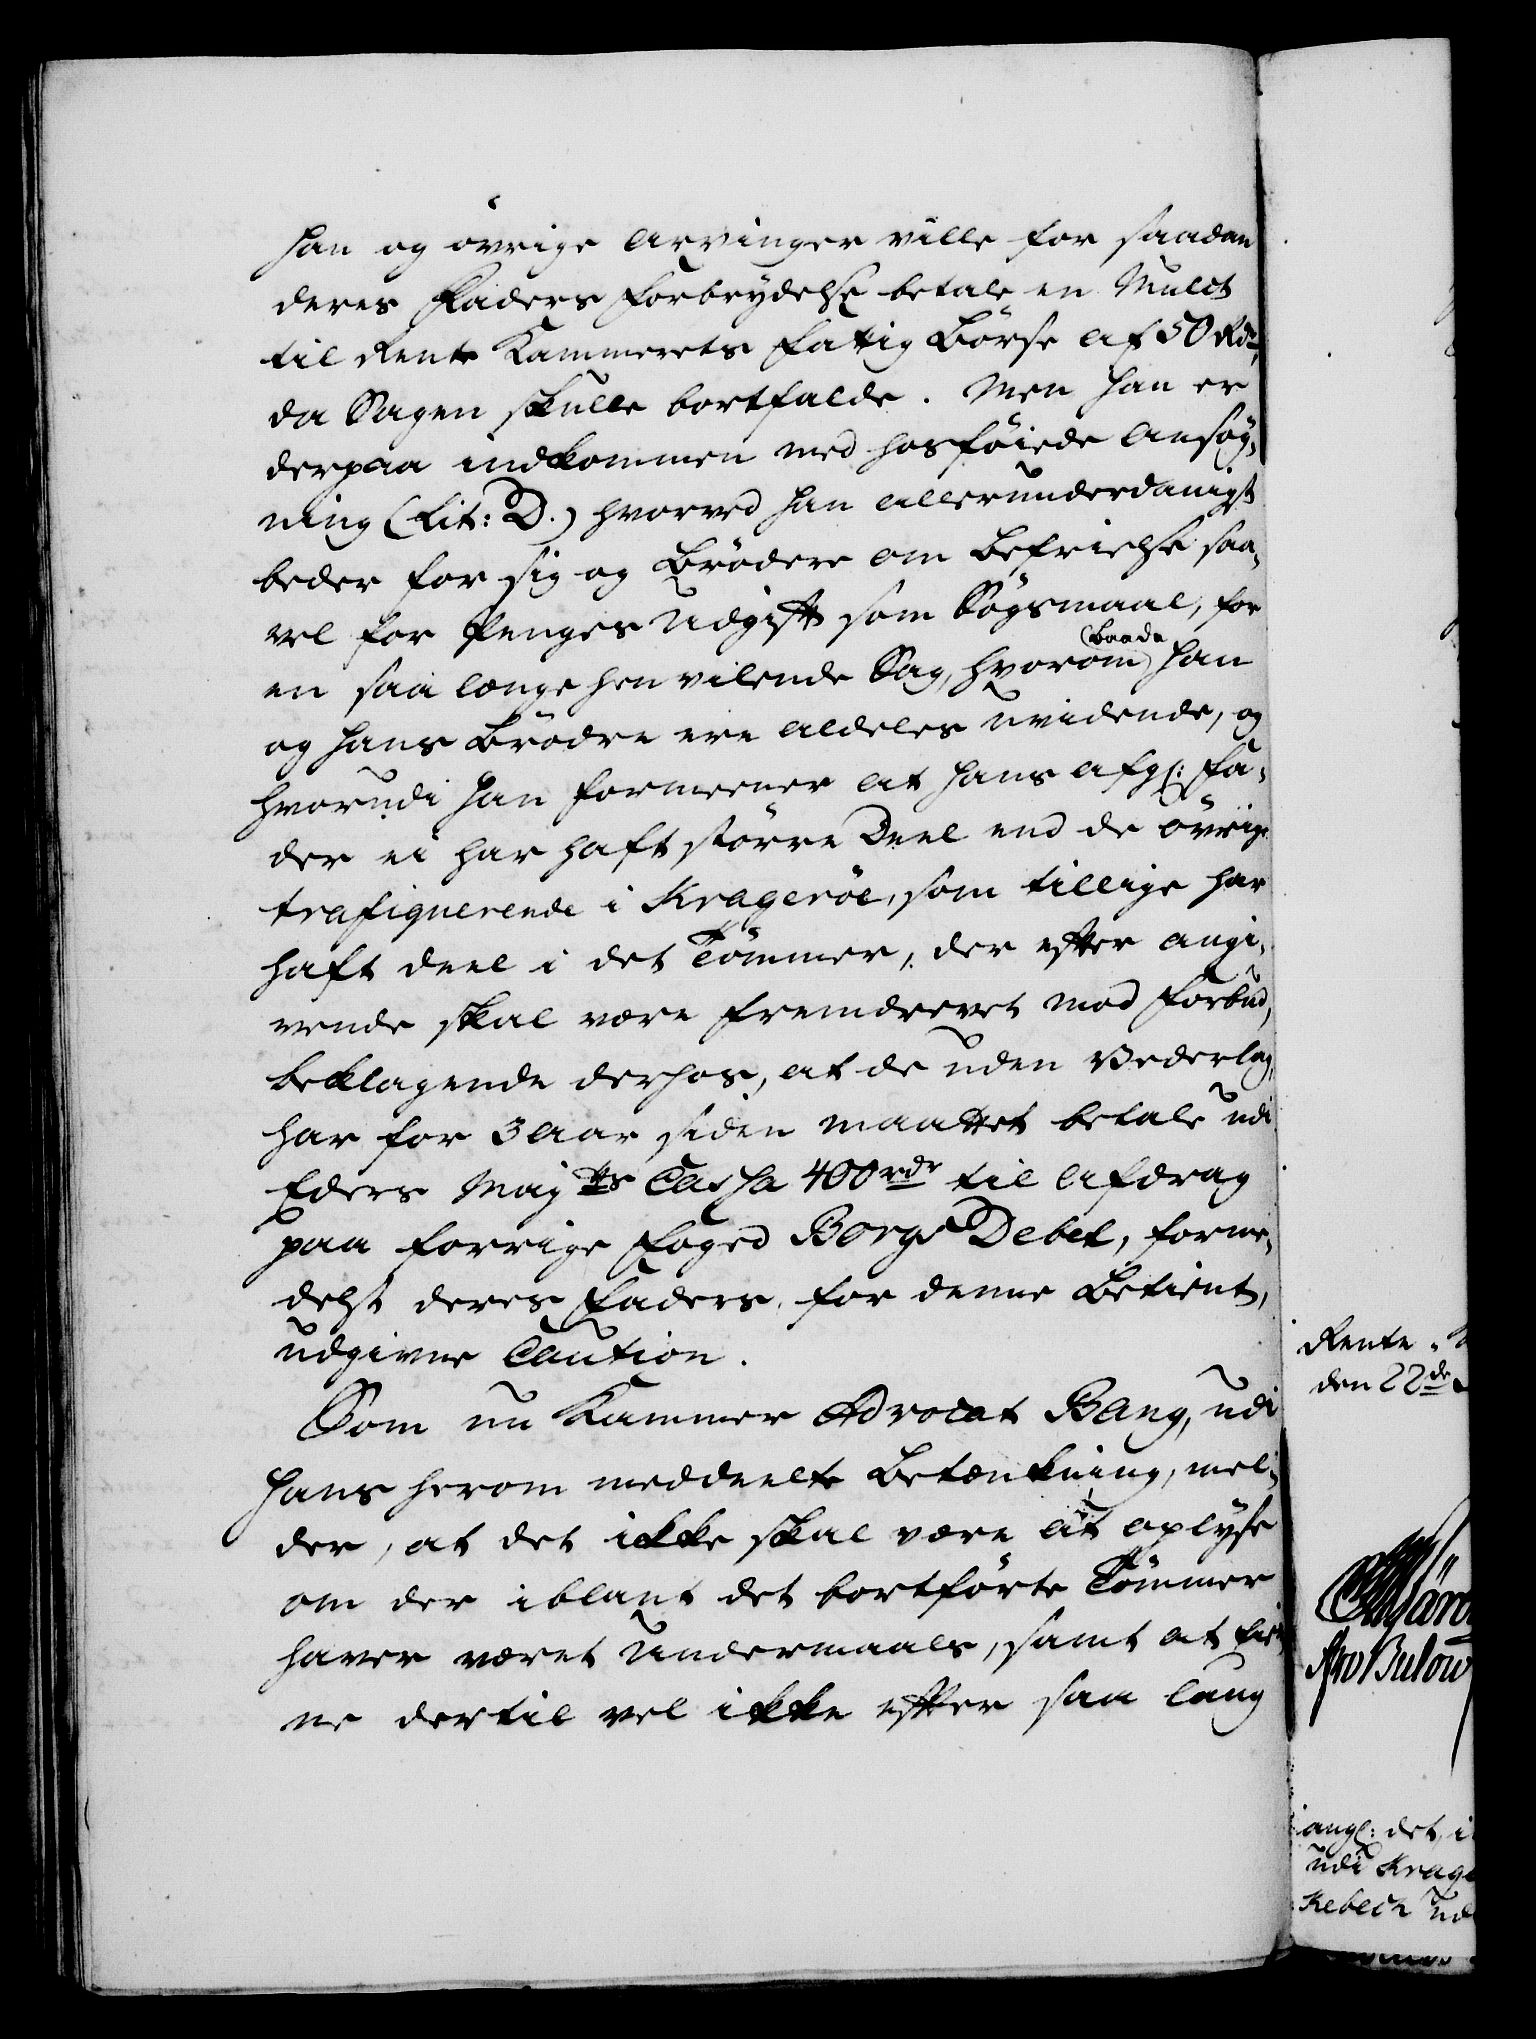 han og övrige Arvinger ville for saadan
deres Faders Forbrydelse betale en Mulct
til Rente Kammerets Fattig Börse af 50 Rdr,
da Sagen skulle bortfalde. Men han er
derpaa indkommen med hosföiede Ansög-
ning (Lit: D.) hvorved han allerunderdanigst
beder for sig og Brödere om Befrielse saa-
vel for Penges Udgift som Sögsmaal, for
en saa længe hen vilende Sag, hvorom (baade) han
og hans Brödre ere aldeles uvidende, og
hvorudi han formeener at hans afg: Fa-
der ei har haft större Deel end de övrige
trafiquerende i Krageröe, som tillige har
haft deel i det Tömmer, der efter angi-
vende skal være fremdrevet mod Forbud,
beklagende derhos, at de uden Vederlag,
har for 3 Aar siden maattet betale udi
Eders Majts Cassa 400 rdr til Afdrag
paa forrige Foged Borgs Debet, forme-
delst deres Faders, for denne Betient,
udgivne Caution.
Som nu Kammer Advocat Bang, udi
hans herom meddeelte Betænkning, mel-
der, at det ikke skal være at oplyse
om der iblant det bortförte Tömmer
haver været Undermaals, samt at
ne dertil vel ikke efter saa lang
Rente
den 22de
Bulow
angl: det i
udi Krage
Rebech ud